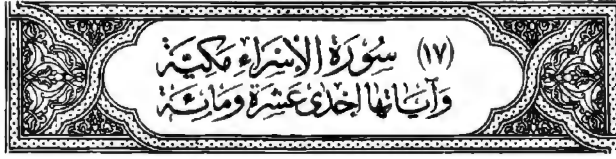 (١٧) سُورَةُ الإِسْرَاءِ مَكِيَّة
وَآيَاتُهَا إِحْدَى عَشَرَةَ وَمَائِة